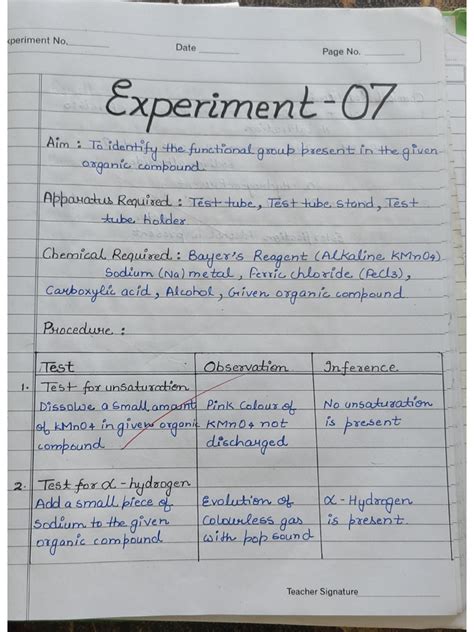 xperiment No.
Date
Page No.
Experiment-07
Aim : To identify the functional group present in the given
organic compound.
Apparatus Required : Test tube, Test tube stand, Test
tube holder
Chemical Required : Bayer's Reagent (Alkaline KMnO4)
Sodium (Na) metal, Ferric chloride (FeCl3),
Carboxylic acid, Alcohol, Given organic compound
Procedure :
Test Observation Inference
1. Test for unsaturation
Dissolve a small amount Pink Colour of No unsaturation
of KMnO4 in given organic KMnO4 not is present
compound discharged
2. Test for α - hydrogen
Add a small piece of Evolution of α - Hydrogen
Sodium to the given Colourless gas is present.
organic compound with pop sound
Teacher Signature